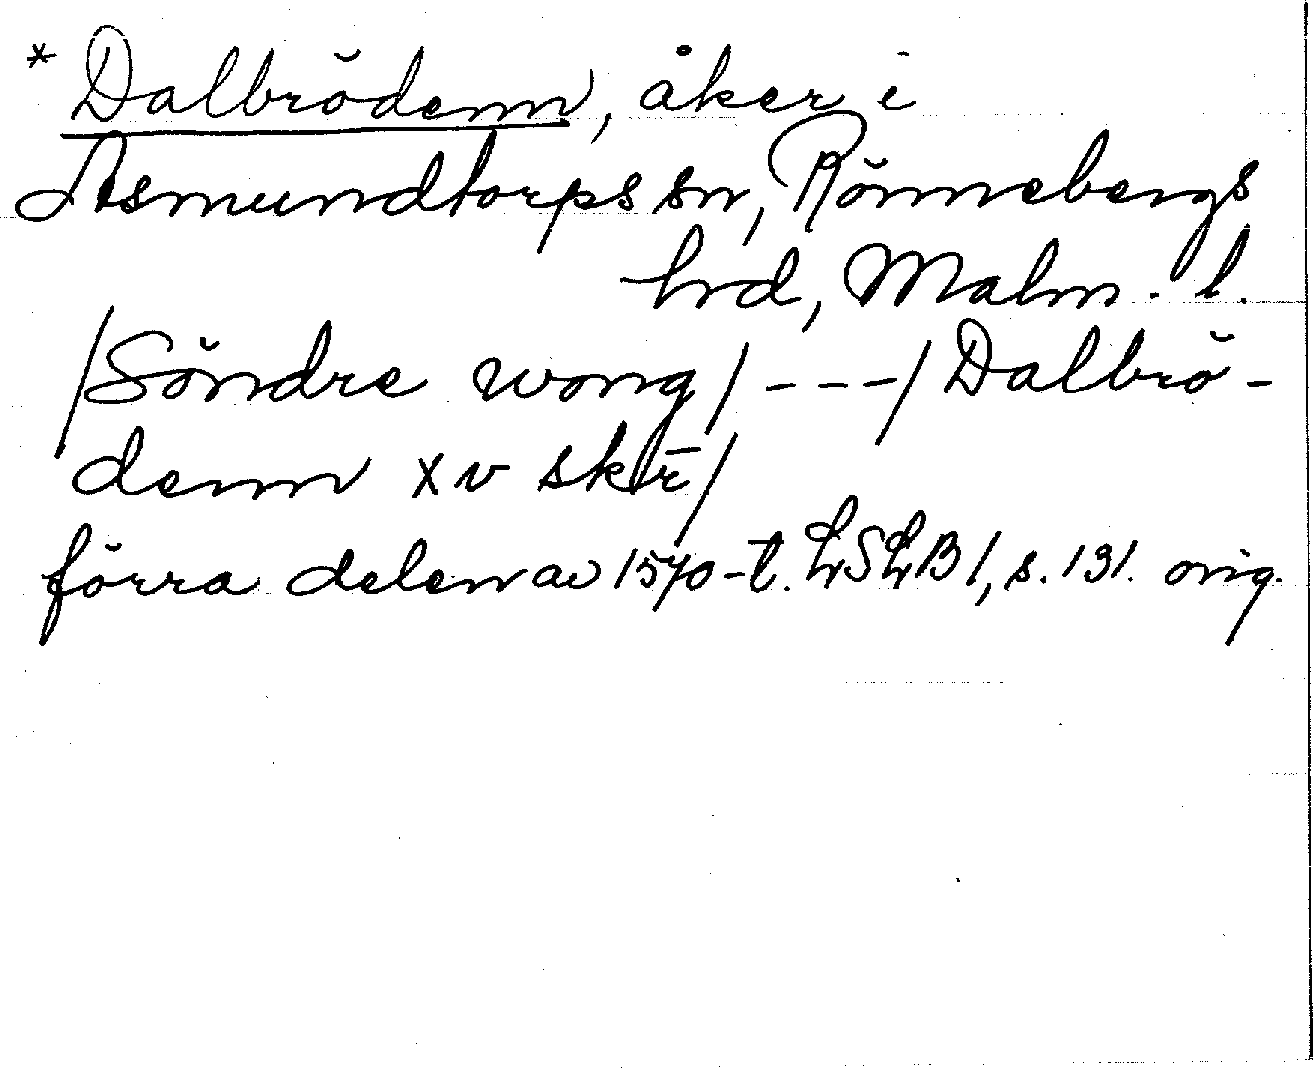 * Dalbrödenn, åker i
Asmundtorps sn, Rönnebergs
hrd, Malm. l.
/Söndre wong/ ---/Dalbrö-
denn xv skr̄/
förra delen av 1570-t. LSLB 1, s. 131. orig.